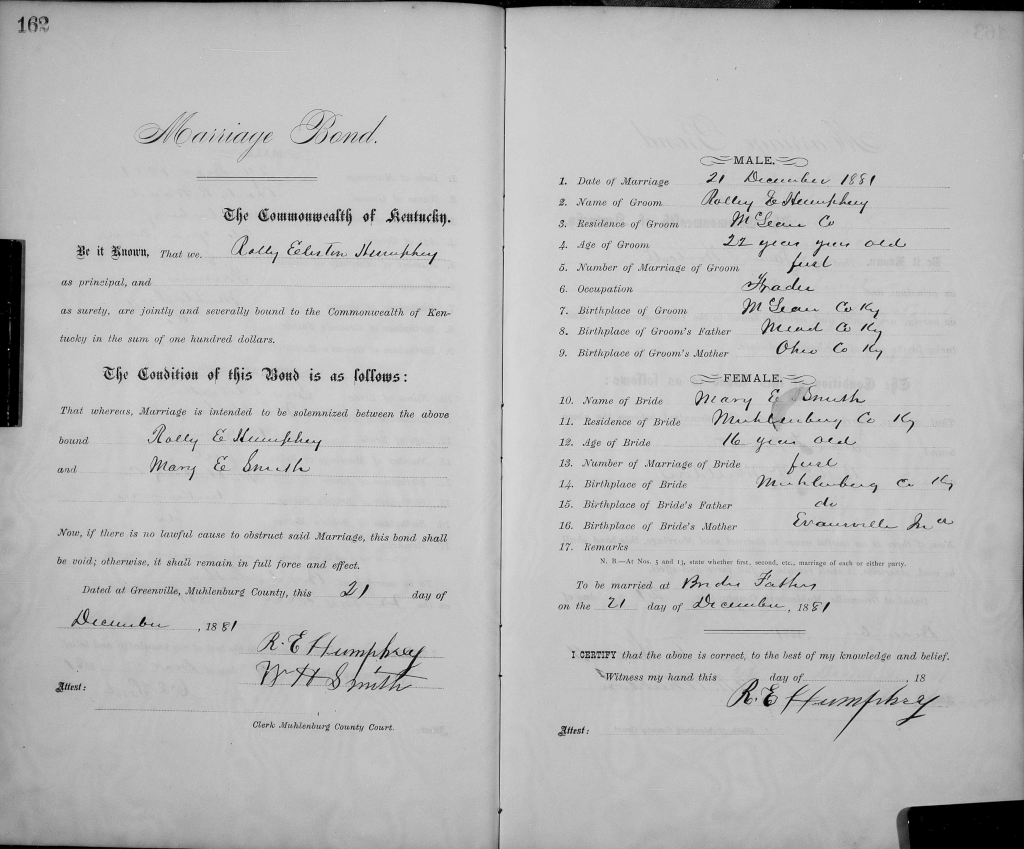 162
Marriage Bond.
The Commonwealth of Kentucky.
Be it Known, That we, Rolly Elliston Humphey
as principal, and
as surety, are jointly and severally bound to the Commonwealth of Ken-
tucky in the sum of one hundred dollars.
The Condition of this Bond is as follows:
That whereas, Marriage is intended to be solemnized between the above
bound Rolly E Humphey
and Mary E Smith
Now, if there is no lawful cause to obstruct said Marriage, this bond shall
be void; otherwise, it shall remain in full force and effect.
Dated at Greenville, Muhlenburg County, this 21 day of
December, 1881
R. E Humphrey
W H Smith
Attest:
Clerk Muhlenburg County Court.
MALE.
1. Date of Marriage 21 December 1881
2. Name of Groom Rolley E Humphey
3. Residence of Groom McLean Co
4. Age of Groom 22 years years old
5. Number of Marriage of Groom first
6. Occupation Trader
7. Birthplace of Groom McLean Co Ky
8. Birthplace of Groom's Father Mead Co Ky
9. Birthplace of Groom's Mother Ohio Co Ky
FEMALE.
10. Name of Bride Mary E Smith
11. Residence of Bride Muhlenburg Co Ky
12. Age of Bride 16 years old
13. Number of Marriage of Bride first
14. Birthplace of Bride Muhlenburg Co Ky
15. Birthplace of Bride's Father do
16. Birthplace of Bride's Mother Evansville Ind
17. Remarks
N. B.—At Nos. 5 and 13, state whether first, second, etc., marriage of each or either party.
To be married at Brides Fathers
on the 21 day of December, 1881
I CERTIFY that the above is correct, to the best of my knowledge and belief.
Witness my hand this day of , 18
R. E Humphrey
Attest: